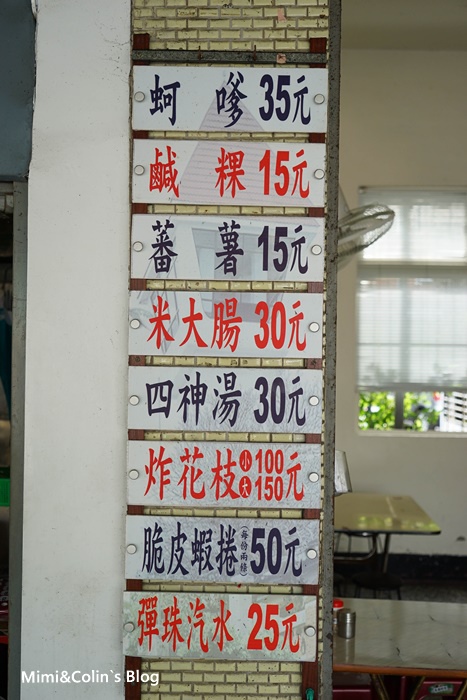 蚵嗲 35元
鹹粿 15元
蕃薯 15元
米大腸 30元
四神湯 30元
炸花枝 小100元 大150元
脆皮蝦捲(每份兩條) 50元
彈珠汽水 25元
Mimi&Colin`s Blog